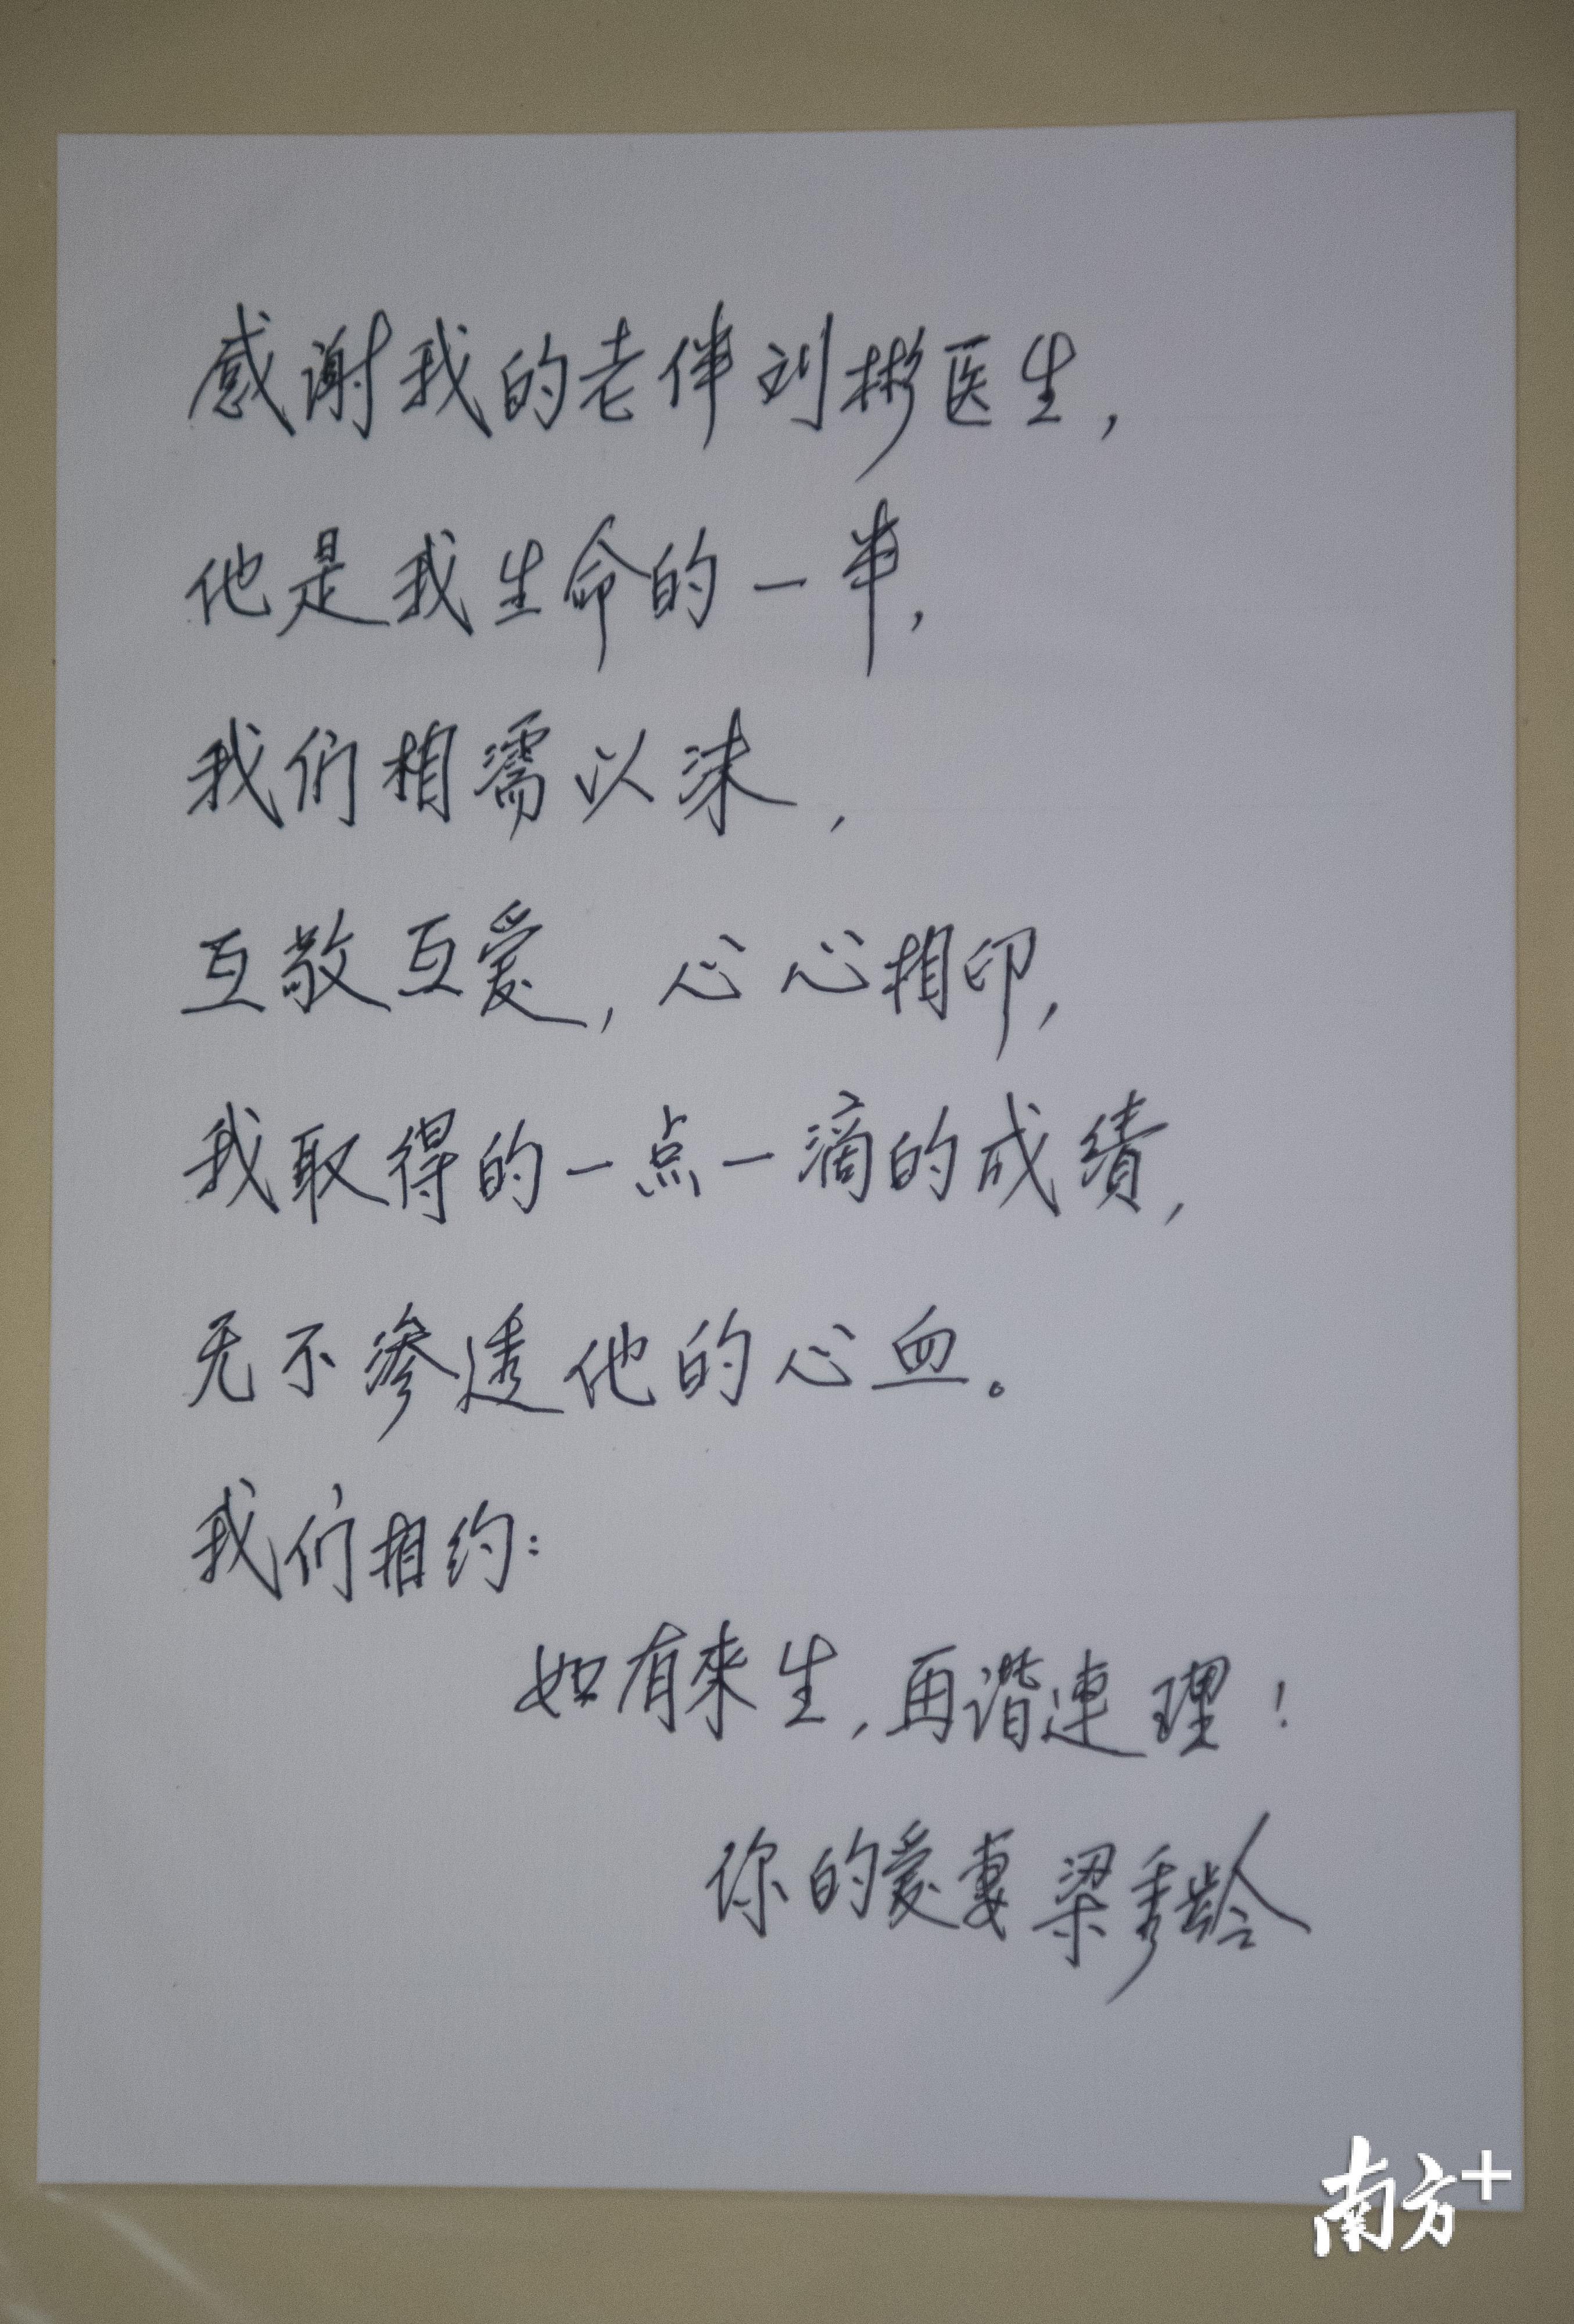 感谢我的老伴刘彬医生，
他是我生命的一半，
我们相濡以沫，
互敬互爱，心心相印，
我取得的一点一滴的成绩，
无不渗透他的心血。
我们相约：
如有來生，再谐連理！
你的爱妻 梁秀龄
南方+